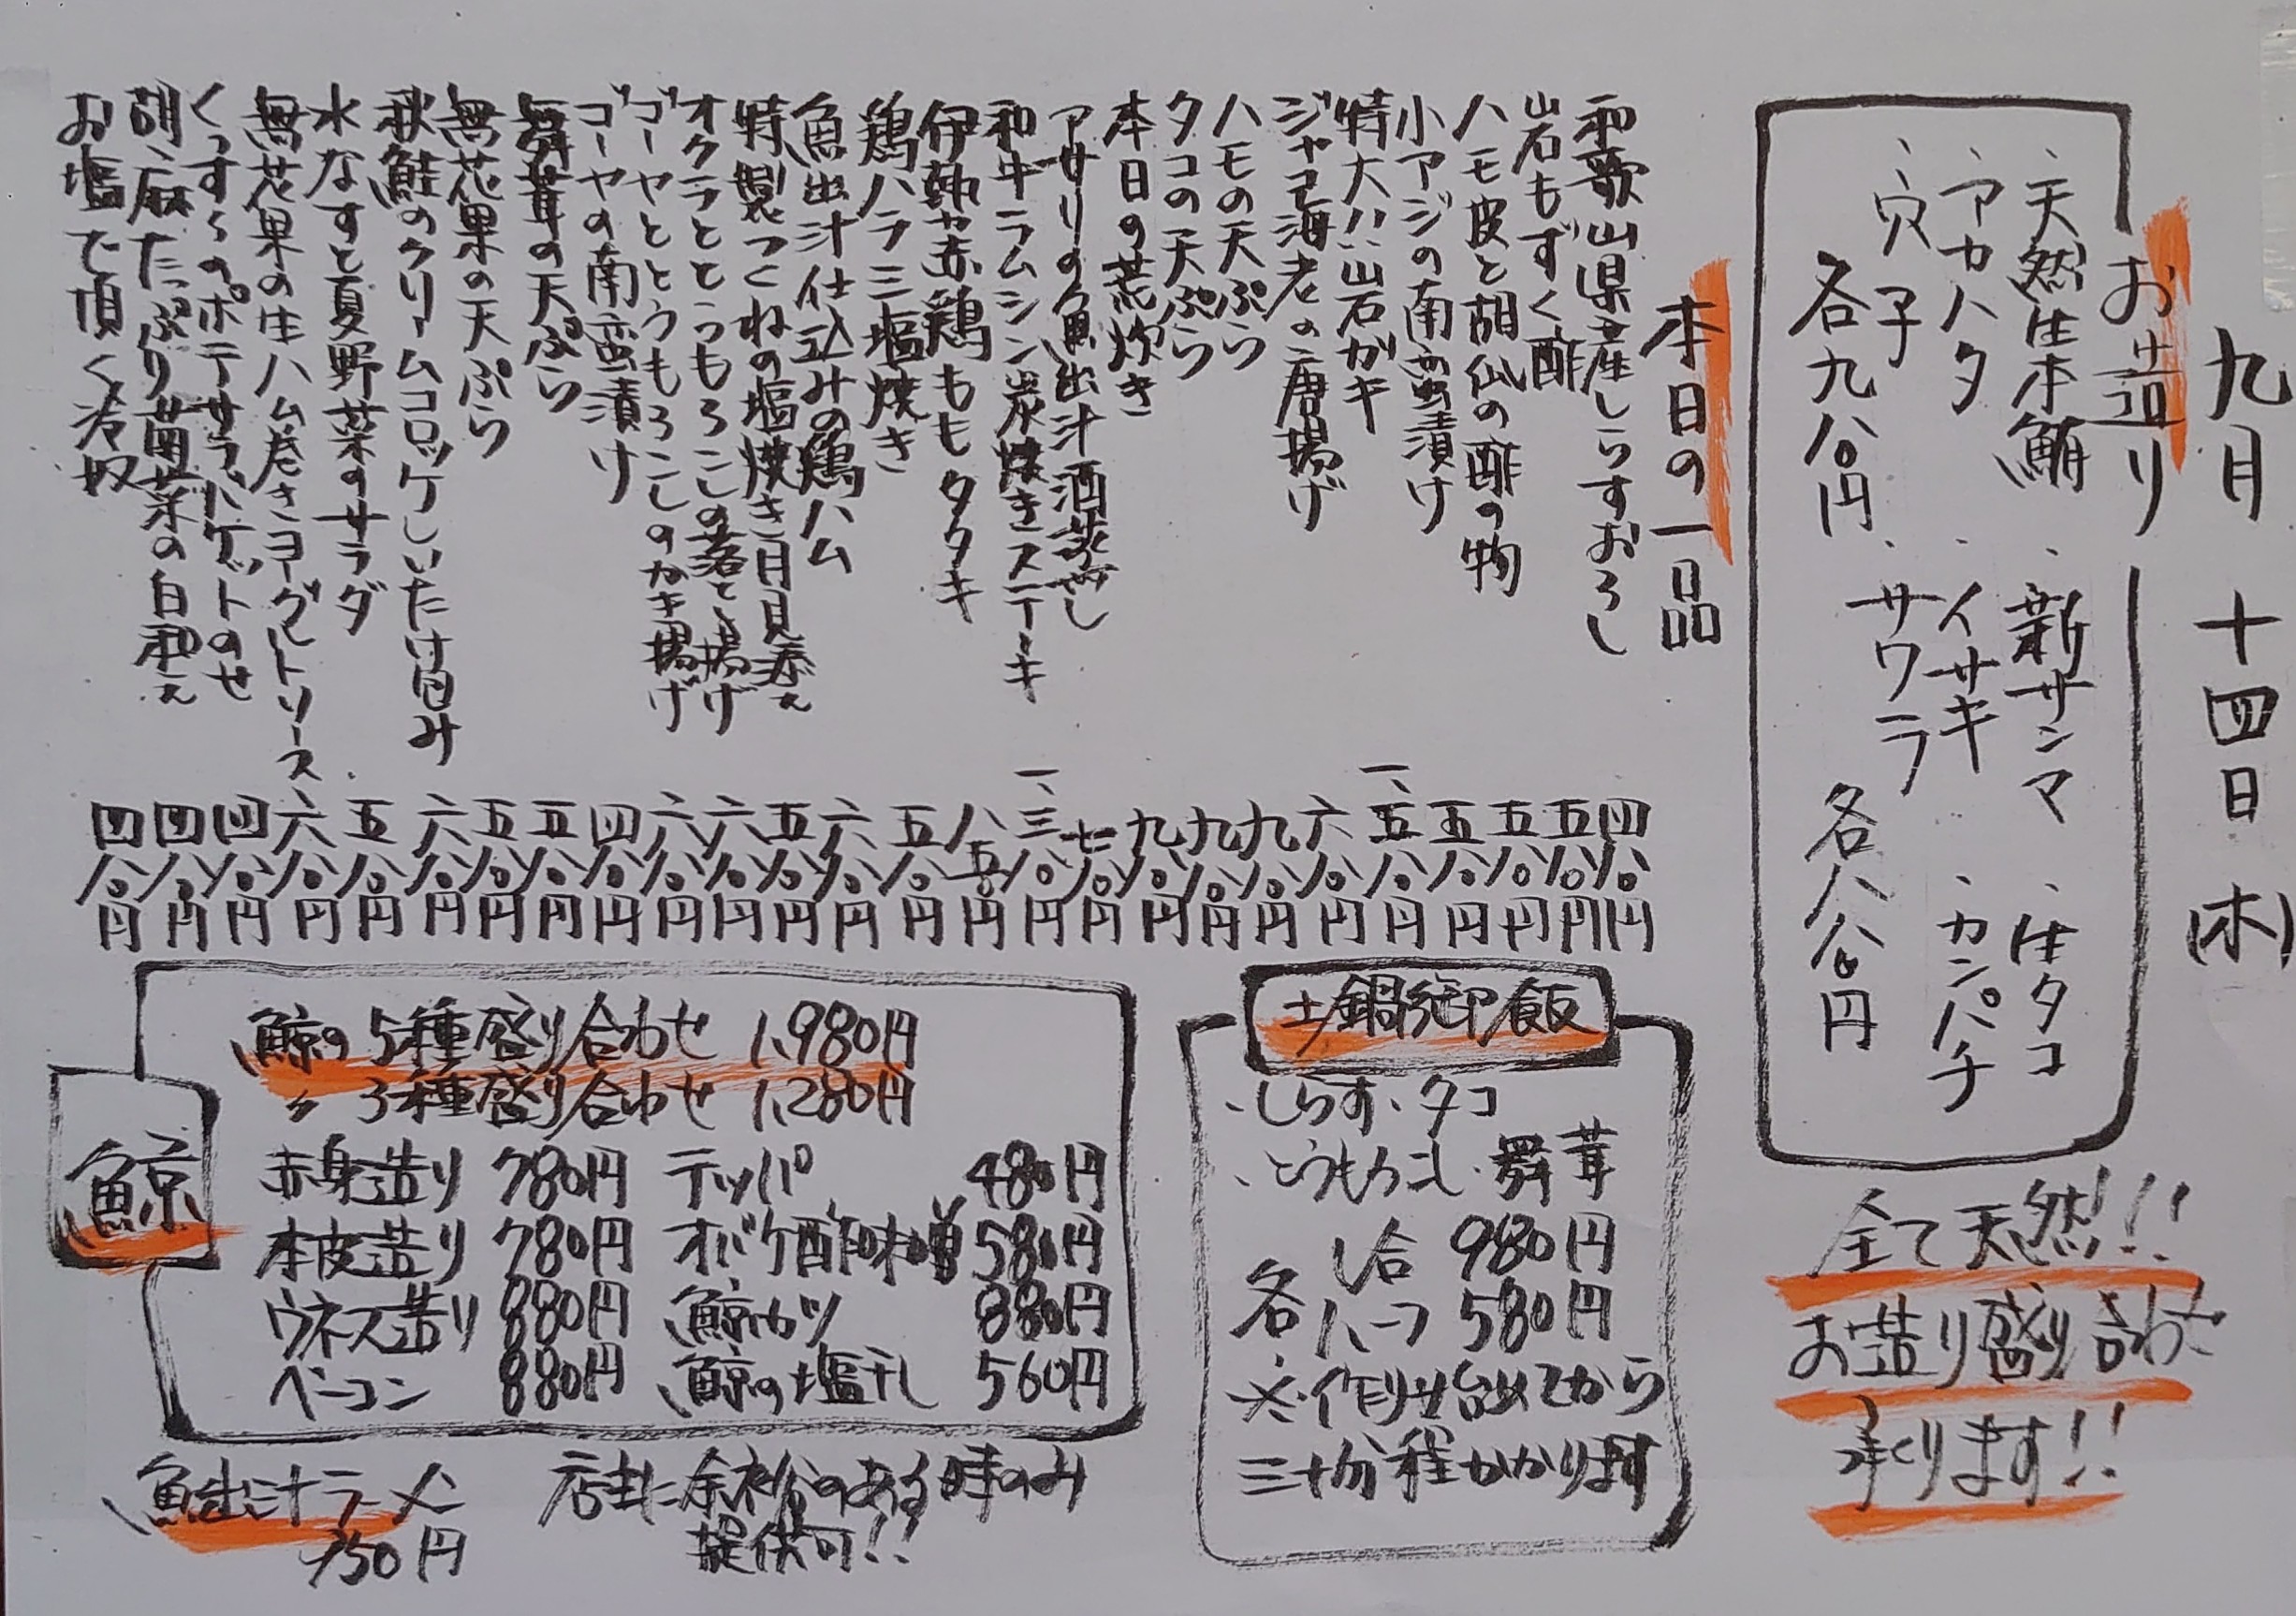 九月十四日(木)
お造り
、天然生本鮪 、新サンマ 、生タコ
、アカハタ 、イサキ 、カンパチ
、穴子 、サワラ
各九八〇円 各八八〇円
全て天然!!
お造り盛り合わせ
承ります!!
本日の一品
和歌山県産しらすおろし 四八〇円
岩もずく酢 五八〇円
ハモ皮と胡瓜の酢の物 五八〇円
小アジの南蛮漬け 五八〇円
特大!!岩ガキ 一、五八〇円
ジャコ海老の唐揚げ 六八〇円
ハモの天ぷら 九八〇円
タコの天ぷら 九八〇円
本日の荒炊き 九八〇円
アサリの魚出汁酒蒸し 七八〇円
和牛ラムシン炭焼きステーキ 一、三八〇円
伊勢赤鶏ももタタキ 八五〇円
鶏ハラミ塩焼き 五八〇円
魚出汁仕込みの鶏ハム 六八〇円
特製つくねの塩焼き月見添え 五八〇円
オクラととうもろこしの落とし揚げ 六八〇円
ゴーヤととうもろこしのかき揚げ 六八〇円
ゴーヤの南蛮漬け 四八〇円
舞茸の天ぷら 五八〇円
無花果の天ぷら 五八〇円
秋鮭のクリームコロッケしいたけ包み 六八〇円
水なすと夏野菜のサラダ 五八〇円
無花果の生ハム巻きヨーグルトソース 六八〇円
くっすくのポテサラバケットのせ 四八〇円
胡麻たっぷり菌菜の白和え 四八〇円
お塩で頂く冷奴 四八〇円
土鍋御飯
、しらす、タコ
、とうもろこし、舞茸
各 1合 980円
ハーフ 580円
※作り出してから
三十分程かかります
鯨
鯨の5種盛り合わせ 1,980円
〃 3種盛り合わせ 1,280円
赤身造り 780円 テッパ 480円
本皮造り 780円 オバケ酢味噌 580円
ウネス造り 880円 鯨カツ 880円
ベーコン 880円 鯨の塩干し 560円
魚出汁ラーメン
750円
店主に余裕のある時のみ
提供可!!